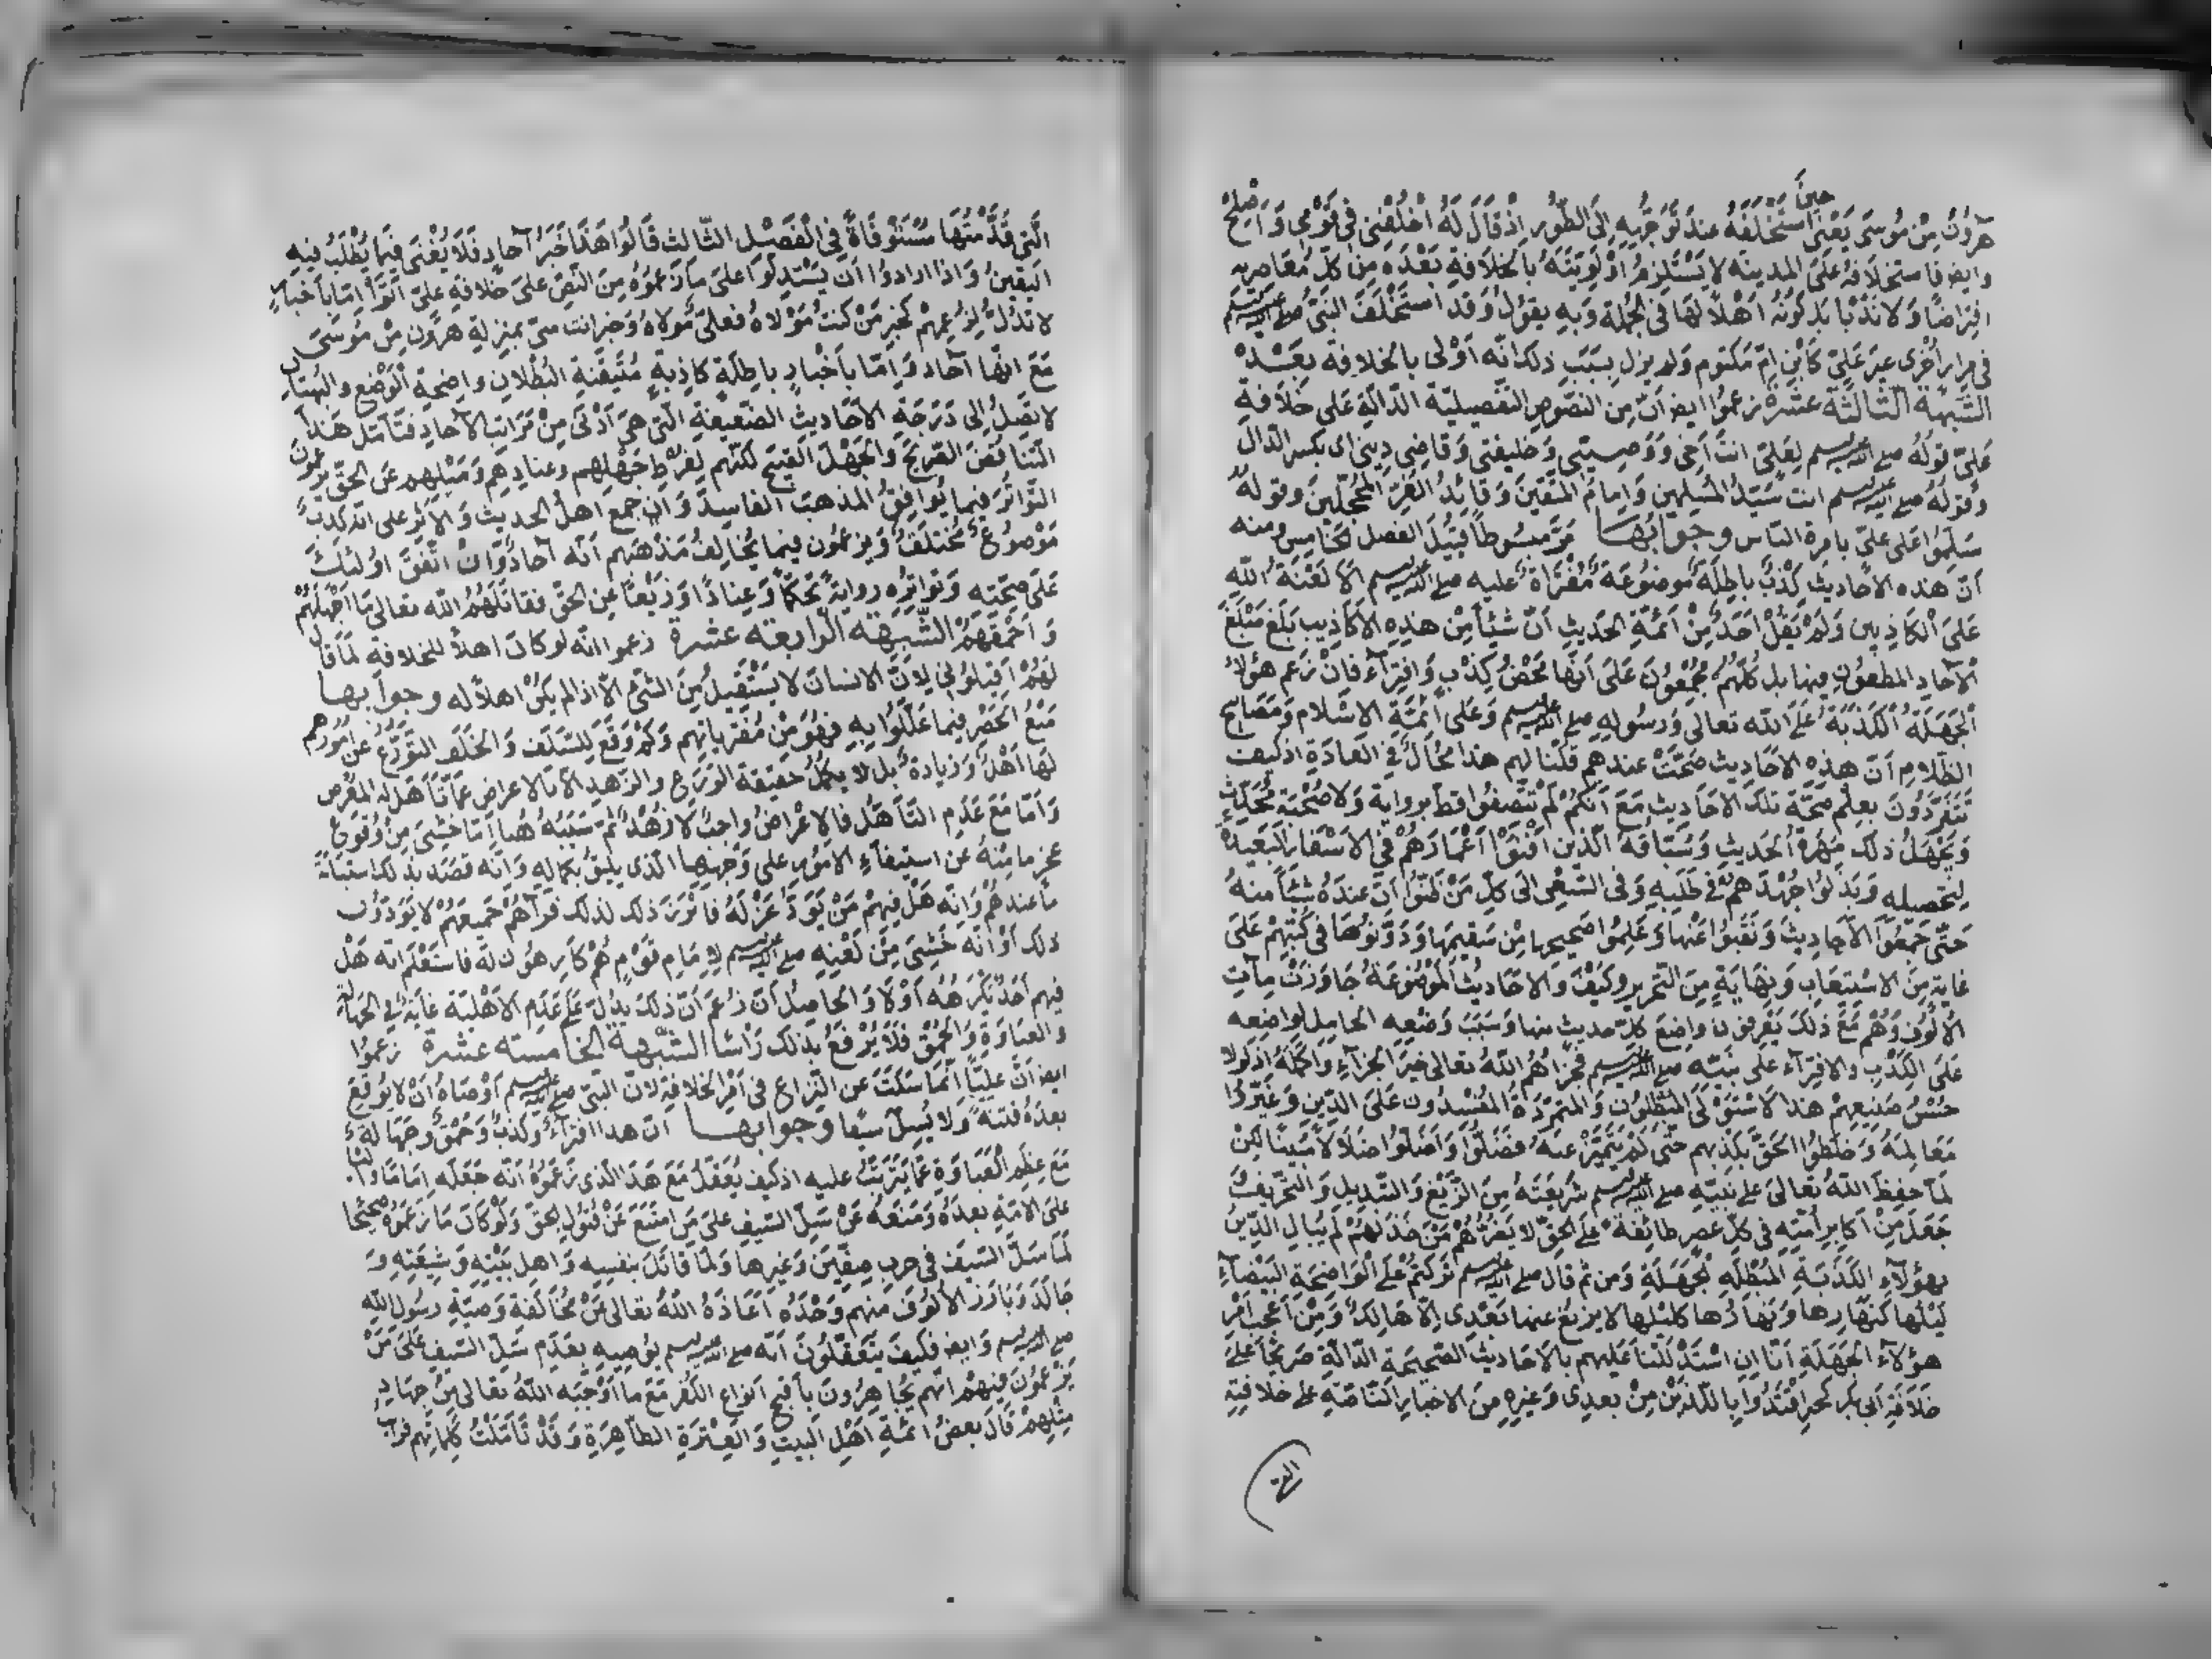 حين
هرون من موسى يعنى استخلفه عند توجهه الى الطور اذ قال له اخلفنى فى قومى واصلح
وايضا فاستخلافه على المدينة لا يستلزم اولويته بالخلافة بعده من كل معاصريه
افتراضا ولا ندبا بل كونه اهلا لها فى الجملة وبه يقول وقد استخلف النبى صلى الله عليه وسلم
فى مرار اخرى غير على كابن ام مكتوم ولم يزل بسبب ذلك انه اولى بالخلافة بعده
الشبهة الثالثة عشرة زعموا ايضا ان من النصوص التفصيلية الدالة على خلافة
على قوله صلى الله عليه وسلم لعلى انت اخى ووصيى وخليفتى وقاضى دينى اى بكسر الدال
وقوله صلى الله عليه وسلم انت سيد المسلمين وامام المتقين وقائد الغر المحجلين وقوله
سلموا على على بامرة الناس وجوابها مر مبسوطا قبيل الفصل الخامس ومنه
ان هذه الاحاديث كذب باطلة موضوعة مفتراة عليه صلى الله عليه وسلم الا لعنة الله
على الكاذبين ولم يقل احد من ائمة الحديث ان شيئا من هذه الاكاذيب بلغ مبلغ
الآحاد المطعون فيها بل كلهم مجمعون على انها محض كذب وافتراء فان زعم هؤلاء
الجهلة الكذبة على الله تعالى ورسوله صلى الله عليه وسلم وعلى ائمة الاسلام ومصابيح
الظلام ان هذه الاحاديث صحت عندهم قلنا لهم هذا محال فى العادة اذ كيف
تتفردون بعلم صحة تلك الاحاديث مع انكم لم تتصفوا قط برواية ولا صحبة محدث
ويجهل ذلك مهرة الحديث وسباقه الذين افنوا اعمارهم فى الاسفار البعيدة
لتحصيله وبذلوا جهدهم فى طلبه وفى السعى الى كل من ظنوا ان عنده شيئا منه
حتى جمعوا الاحاديث ونقبوا عنها وعلموا صحيحها من سقيمها ودونوها فى كتبهم على
غاية من الاستيعاب ونهاية من التحرير وكيف والاحاديث الموضوعة جاوزت مآت
الالوف وهم مع ذلك يعرفون واضع كل حديث منها وسبب وضعه الحامل لواضعه
على الكذب والافتراء على نبيه صلى الله عليه وسلم فجزاهم الله تعالى خير الجزاء واكمله اذ لولا
حسن صنيعهم هذا لاستولى المبطلون والمتمردة المفسدون على الدين وغيروا
معالمه وخلطوا الحق بكذبهم حتى لم يتميز عنه فضلوا واضلوا ضلالا مبينا لكن
لما حفظ الله تعالى على نبيه صلى الله عليه وسلم شريعته من الزيغ والتبديل والتحريف
جعل من اكابر امته فى كل عصر طائفة على الحق لا يضرهم من خذلهم لم يبال الدين
بهؤلاء الكذبة المبطلة الجهلة ومن ثم قال صلى الله عليه وسلم تركتكم على الواضحة البيضاء
ليلها كنهارها ونهارها كليلها لا يزيغ عنها بعدى الا هالك ومن اعجب امر
هؤلاء الجهلة انا ان استدللنا عليهم بالاحاديث الصحيحة الدالة صريحا على
خلافة ابى بكر كخبر اقتدوا باللذين من بعدى وغيره من الاخبار الناصة على خلافته
التى
التى قدمتها مستوفاة فى الفصل الثالث قالوا هذا خبر آحاد فلا يغنى فيما يطلب فيه
اليقين واذا ارادوا ان يستدلوا على ما زعموه من النص على خلافة على اتوا اما باخبار
لا تدل لزعمهم كخبر من كنت مولاه فعلى مولاه وخبر انت منى بمنزلة هرون من موسى
مع انها آحاد واما باخبار باطلة كاذبة متيقنة البطلان واضحة الوضع والبهتان
لا تصل الى درجة الاحاديث الضعيفة التى هى ادنى من مراتب الآحاد فتامل هذا
التناقض الصريح والجهل القبيح لكنهم لفرط جهلهم وعنادهم وميلهم عن الحق يزعمون
التواتر فيما يوافق المذهب الفاسد وان جمع اهل الحديث والاثر على انه كذب
موضوع مختلف ويزعمون فيما يخالف مذهبهم انه آحاد وان اتفق اولئك
على صحته وتواتره رواية تحكما وعنادا وزيغا عن الحق فقاتلهم الله تعالى ما اجهلهم
واحمقهم الشبهة الرابعة عشرة زعموا انه لو كان اهلا للخلافة لما قال
لهم اقيلونى لان الانسان لا يستقيل من الشئ الا اذا لم يكن اهلا له وجوابها
منع الحصر فيما عللوا به فهو من مفترياتهم وكم وقع للسلف والخلف التورع عن امور هم
لها اهل وزيادة بل لا يكمل حقيقة الورع والزهد الا بالاعراض عما تاهل له المعرض
واما مع عدم التاهل فالاعراض واجب لا زهد ثم سببه هنا اما خشى من وقوع
عجز ما منه عن استيفاء الامور على وجهها الذى يليق بكماله وانه قصد بذلك استبانة
ما عندهم وانه هل فيهم من يود عزله فابرز ذلك لذلك فرآهم جميعهم لا يودون
ذلك او انه خشى من لعنه صلى الله عليه وسلم لامام قوم هم كارهون له فاستعلم انه هل
فيهم احد يكرهه اولا والحاصل ان زعم ان ذلك يدل على عدم الاهلية غاية فى الجهالة
والغباوة والحمق فلا يرفع بذلك راسا الشبهة الخامسة عشرة زعموا
ايضا ان عليا انما سكت عن النزاع فى امر الخلافة لان النبى صلى الله عليه وسلم اوصاه ان لا يوقع
بعده فتنة ولا يسل سيفا وجوابها ان هذا افتراء وكذب وحمق وجهالة
مع عظم الغباوة عما يترتب عليه اذ كيف يعقل مع هذا الذى زعموه انه جعله اماما واليا
على الامة بعده ومنعه عن سل السيف على من امتنع عن قبول الحق ولو كان ما زعموه صحيحا
لما سل السيف فى حرب صفين وغيرها ولما قاتل بنفسه واهل بيته وشيعته و
جالد وبارز الالوف منهم وحده اعاذه الله تعالى من مخالفة وصية رسول الله
صلى الله عليه وسلم وايضا فكيف يتعقلون انه صلى الله عليه وسلم يوصيه بعدم سل السيف على من
يزعمون فيهم انهم يجاهرون باقبح انواع الكفر مع ما اوجبه الله تعالى من جهاد
مثلهم قال بعض ائمة اهل البيت والعترة الطاهرة وقد تاملت كلماتهم فرايت